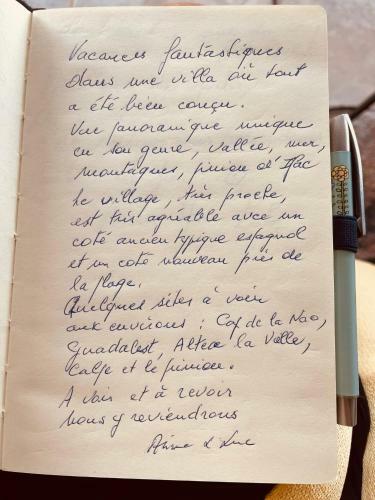 Vacances fantastiques
dans une villa où tout
a été bien conçu.
Vue panoramique unique
en son genre, vallée, mer,
montagnes, piñion d'Ifac
Le village, très proche,
est très agréable avec un
coté ancien typique espagnol
et un coté nouveau près de
la plage.
Quelques sites à voir
aux environs : Cap de la Nao,
Guadalest, Altea la Vella,
Calpe et le piñion.
A voir et à revoir
Nous y reviendrons
& Luc